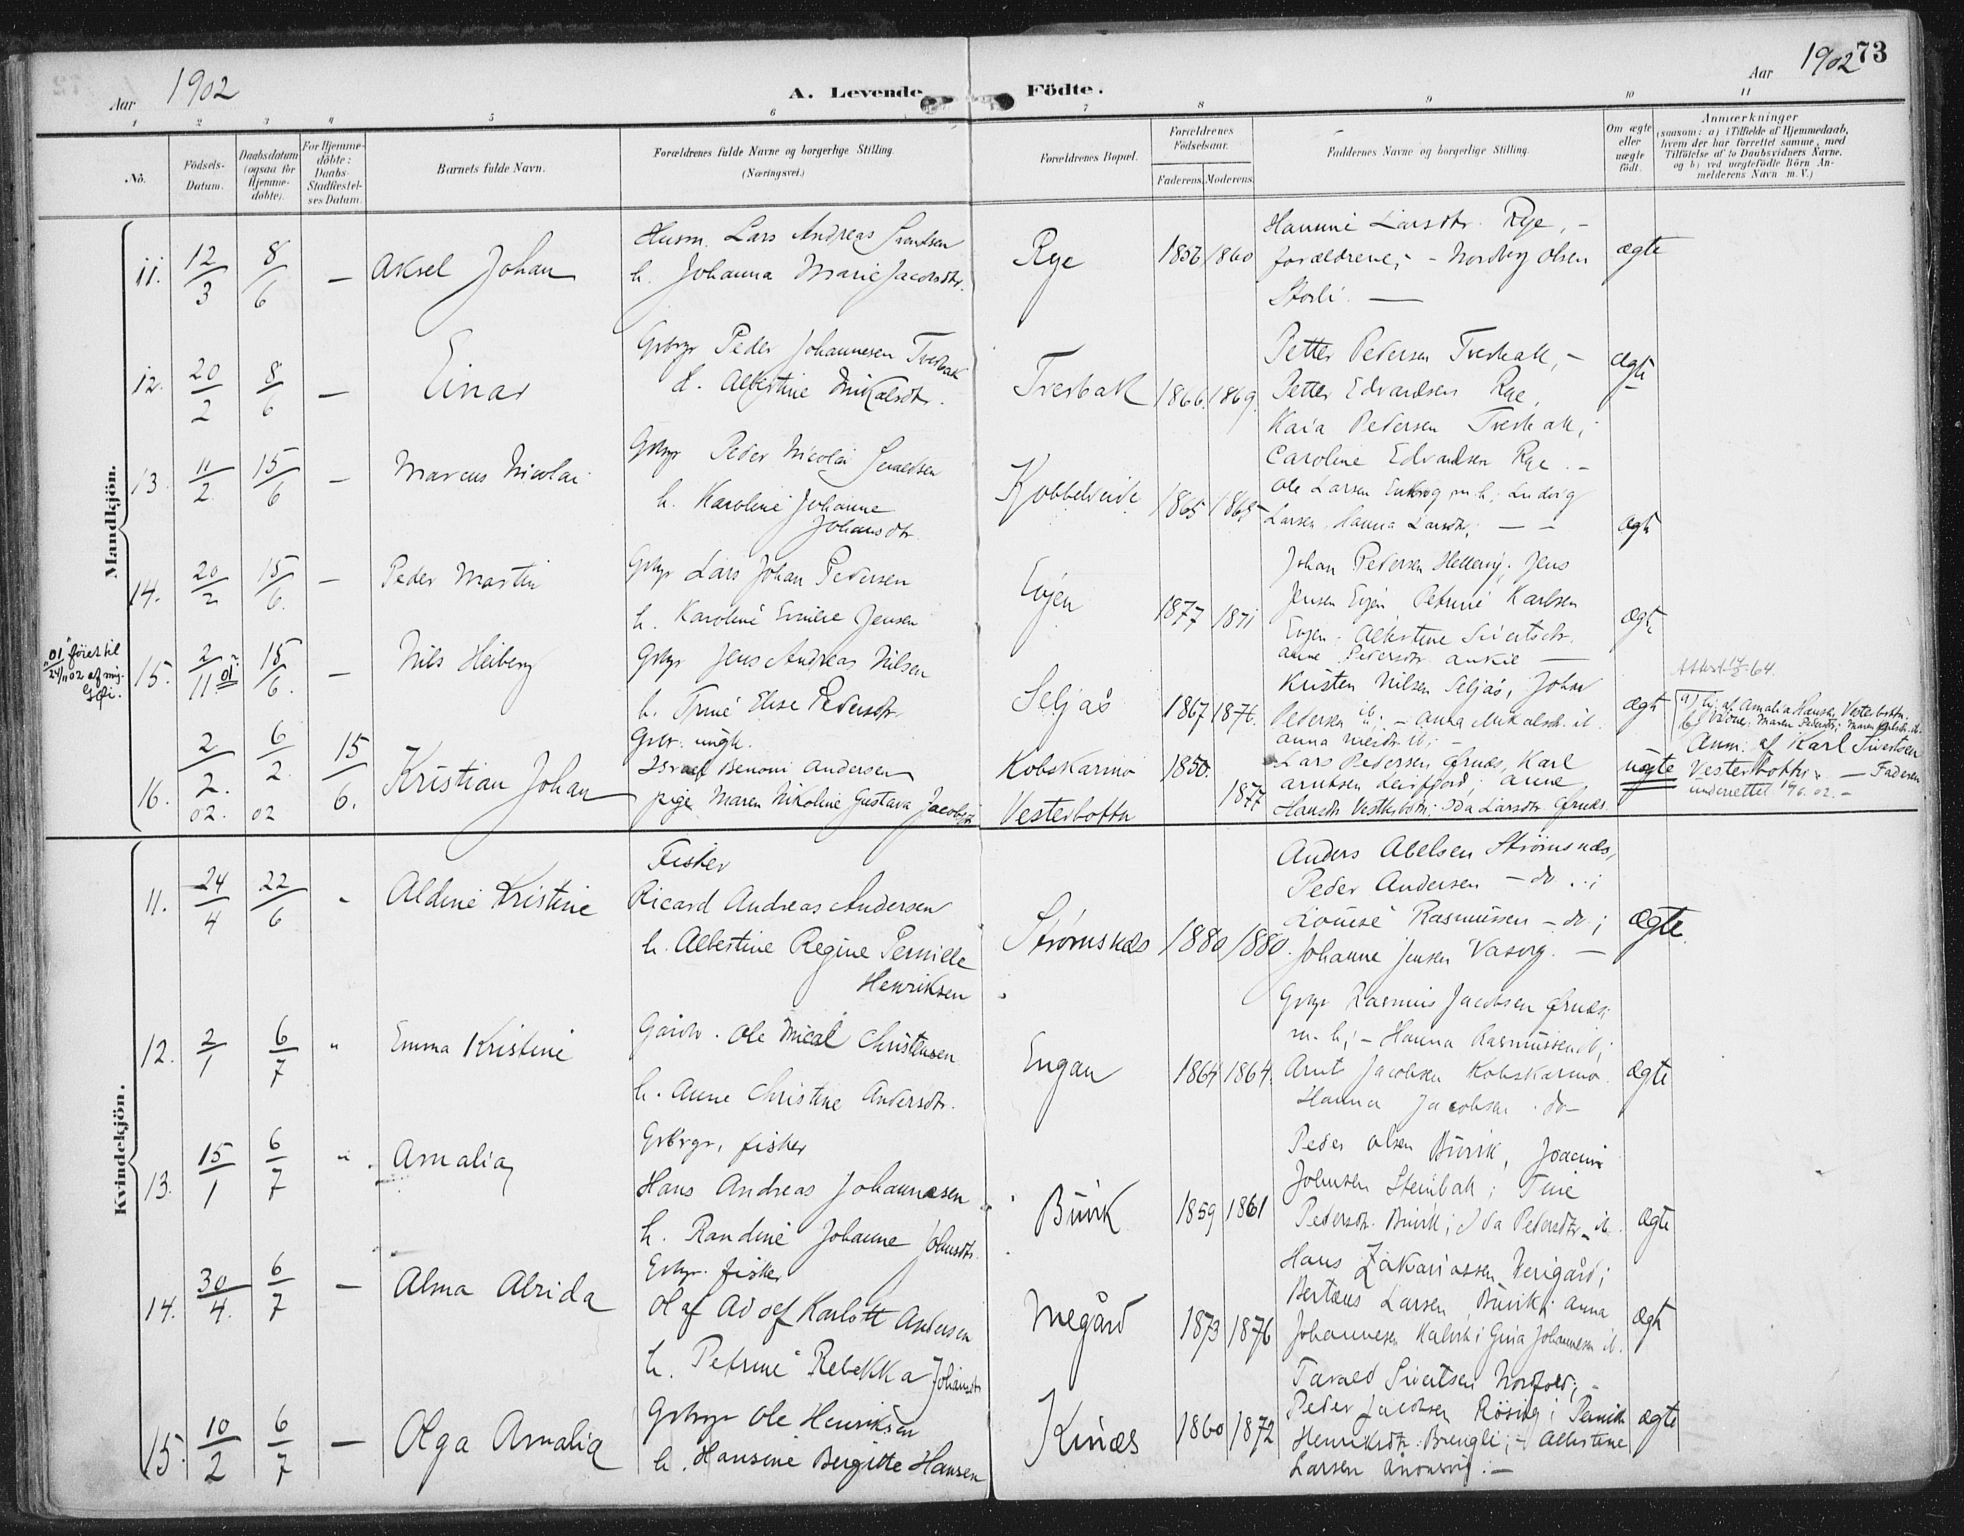 Aar 1902
A. Levende Födte.
Aar 1902 73
1 2 3 4 5 6 7 8 9 10 11
No.
Födsels-Datum.
Daabsdatum (ogsaa for Hjemme-døbte).
For Hjemme-døbte: Daabs-Stadfæstel-ses Datum.
Barnets fulde Navn.
Forældrenes fulde Navne og borgerlige Stilling. (Næringsvei.)
Forældrenes Bopæl.
Forældrenes Födselsaar.
Faderens Moderens
Faddernes Navne og borgerlige Stilling.
Om ægte eller uægte født.
Anmærkninger (saasom: a) i Tilfælde af Hjemmedaab, hvem der har forrettet samme, med Tilføielse af to Daabsvidners Navne. og b) ved uægtefødte Börn An-melderens Navn m. V.)
Mandkjön.
11. 12/3 8/6 — Aksel Johan
Husm. Lars Andreas
h. Johanna Marie Jacobsdtr.
Rye 1856 1860
Larsdtr. Rye, -
forældrene, - Nordberg Olsen
Storli. —
ægte
12. 20/2 8/6 — Einar
Grbrgr Peder Johannesen Tverbak
h. Albertine Mikalsdtr.
Tverbak 1866 1869
Petter Pedersen Tverbak, -
Petter Edvardsen Rye,
Kaia Pedersen Tverbak,
Caroline Edvardsen Rye. -
ægte
13. 11/2 15/6 — Marcus Nicolai
Grbgr Peder Nicolai
h. Karoline Johanne
Johansdtr.
Kobbelveide 1865 1865
Ole Larsen m. h., Ludvig
Larsen, Hanna Larsdtr; — -
ægte
14. 20/2 15/6. — Peder Martin
Grbgr Lars Johan Pedersen
h. Karoline Emilie Jensen
Evjen 1877 1871
Johan Pedersen Jens
Jensen Evjen, Petrine Karlsen
Evjen; Albertine Sivertsdtr.
Anne Pedersdtr. —
ægte
"01" føiet til
24/11 02 af mig.
15. 2/11 "01" 15/6. — Nils Heiberg
Grbgr Jens Andreas Nilsen
h. Trine Elise Pedersdtr.
Seljås 1867 1876.
Kristen Nilsen Seljås, Johan
Pedersen ib; - Anna Mikalsdtr. ib.
Anna Nilsdtr ib; -
ægte
16. 2/2. 02. 6/2 02 15/6. Kristian Johan
Grbr. ungk.
Israel Benoni Andersen
pige Maren Nikoline Gustava Jacobsdtr
Kobskarmo 1850.
Vesterbotten 1877
Lars Pedersen Grnæs, Karl
Arntsen Leirfjord; Anne
Hansdtr Vesterbotn; Ida Larsdtr Grnæs.
uægte
a) hj. af Amalia Hansdtr, Vesterbottn.
Anm. af Karl Sivertsen
Vesterbottn. — Faderen
underrettet
Kvindekjön.
11. 24/4 22/6 - Aldine Kristine
Fisker
Ricard Andreas Andersen
h. Albertine Regine Pernille
Henriksen
Strømsnæs 1880 1880.
Anders Abelsen Strømsnæs,
Peder Andersen - do..;
Louise Rasmussen - do;
Johanne Jensen Vasvig. —
ægte.
12. 2/1 6/7 " Emma Kristine
Gårdbr. Ole Mical Christensen
h. Anne Christine Andersdtr.
Engan 1864 1864.
Grbgr Rasmus Jacobsen Grnæs;
m. h; - Hanna Rasmussen ib;
Arnt Jacobsen Kobskarmo.
Hanna Jacobsen . do -
ægte
13. 15/1 6/7 " Amalia
Grbrgr, fisker
Hans Andreas Johannesen
h. Randine Johanne Johnsdtr.
Buvik 1859 1861
Peder Olsen Buvik, Joacim
Johnsen Steinbak; Tine
Pedersdtr. Buvik; Ida Pedersdtr. ib.
ægte
14. 30/4. 6/7 — Alma Alrida
Grbgr. fisker
Olaf Adolf Karlott Andersen
h. Petrine Rebekka Johansdtr
Megård 1873 1876
Hans Zakariassen Megård;
Bertæus Larsen Buvik; Anna
Johannesen Kalvik; Gina Johannesen ib.
ægte
15. 10/2 6/7 — Olga Amalia
Grbrgr Ole Henriksen
h. Hansine Bergitte Hansen
Kinæs 1860 1872
Tarald Sivertsen Nordfold; -
Peder Jacobsen Røsvig; Pernille
Henriksdtr. Brengli; - Albertine
Larsen —
ægte